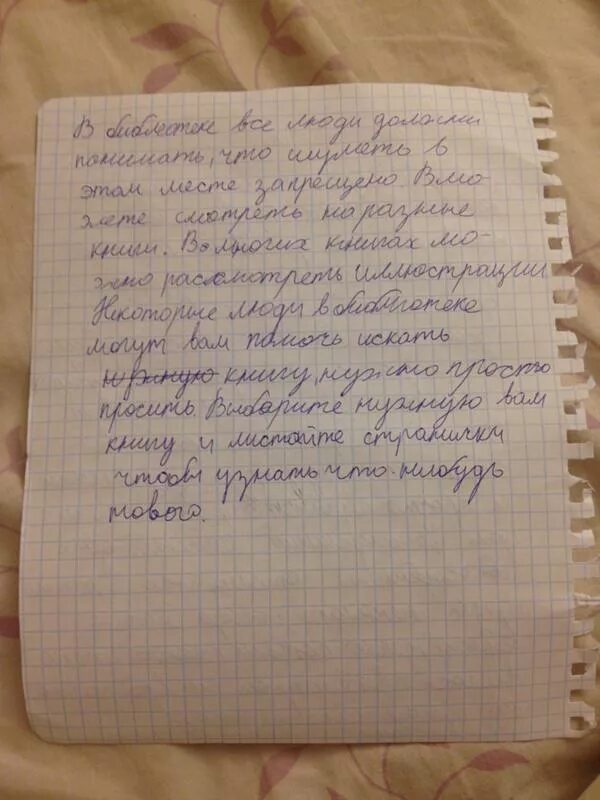 В библеотеке все люди должни
понимать, что шуметь в
этом месте запрещено. Вмо-
жете смотреть на разные
книги. В многих книгах мо-
жно рассмотреть иллюстрации
Некоторые люди в библиотеке
могут вам помочь искать
нужную книгу, нужно просто
просить. Выбарите нужную вам
книгу и листайте странички
чтобы узнать что-нибудь
нового.